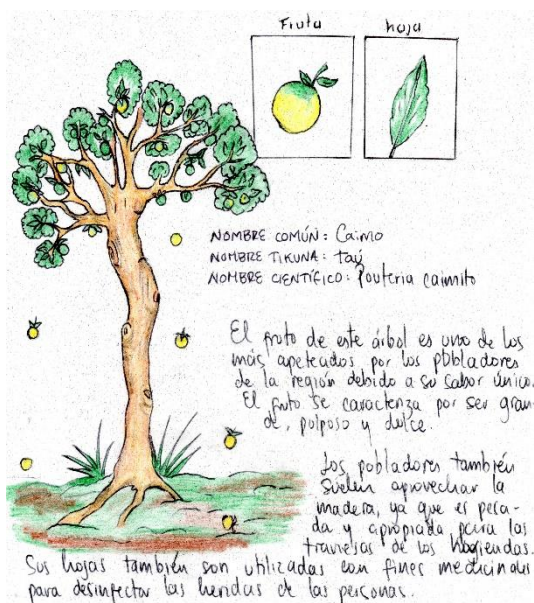 Fruta
hoja
NOMBRE COMÚN: Caimo
NOMBRE TIKUNA: taú
NOMBRE CIENTÍFICO: Pouteria caimito
El fruto de este árbol es uno de los
más apetecidos por los pobladores
de la región debido a su sabor único.
El fruto se caracteriza por ser gran-
de, pulposo y dulce.
Los pobladores también
suelen aprovechar la
madera, ya que es pesa-
da y apropiada para las
traviesas de las
Sus hojas también son utilizadas con fines medicinales
para desinfectar las heridas de las personas.